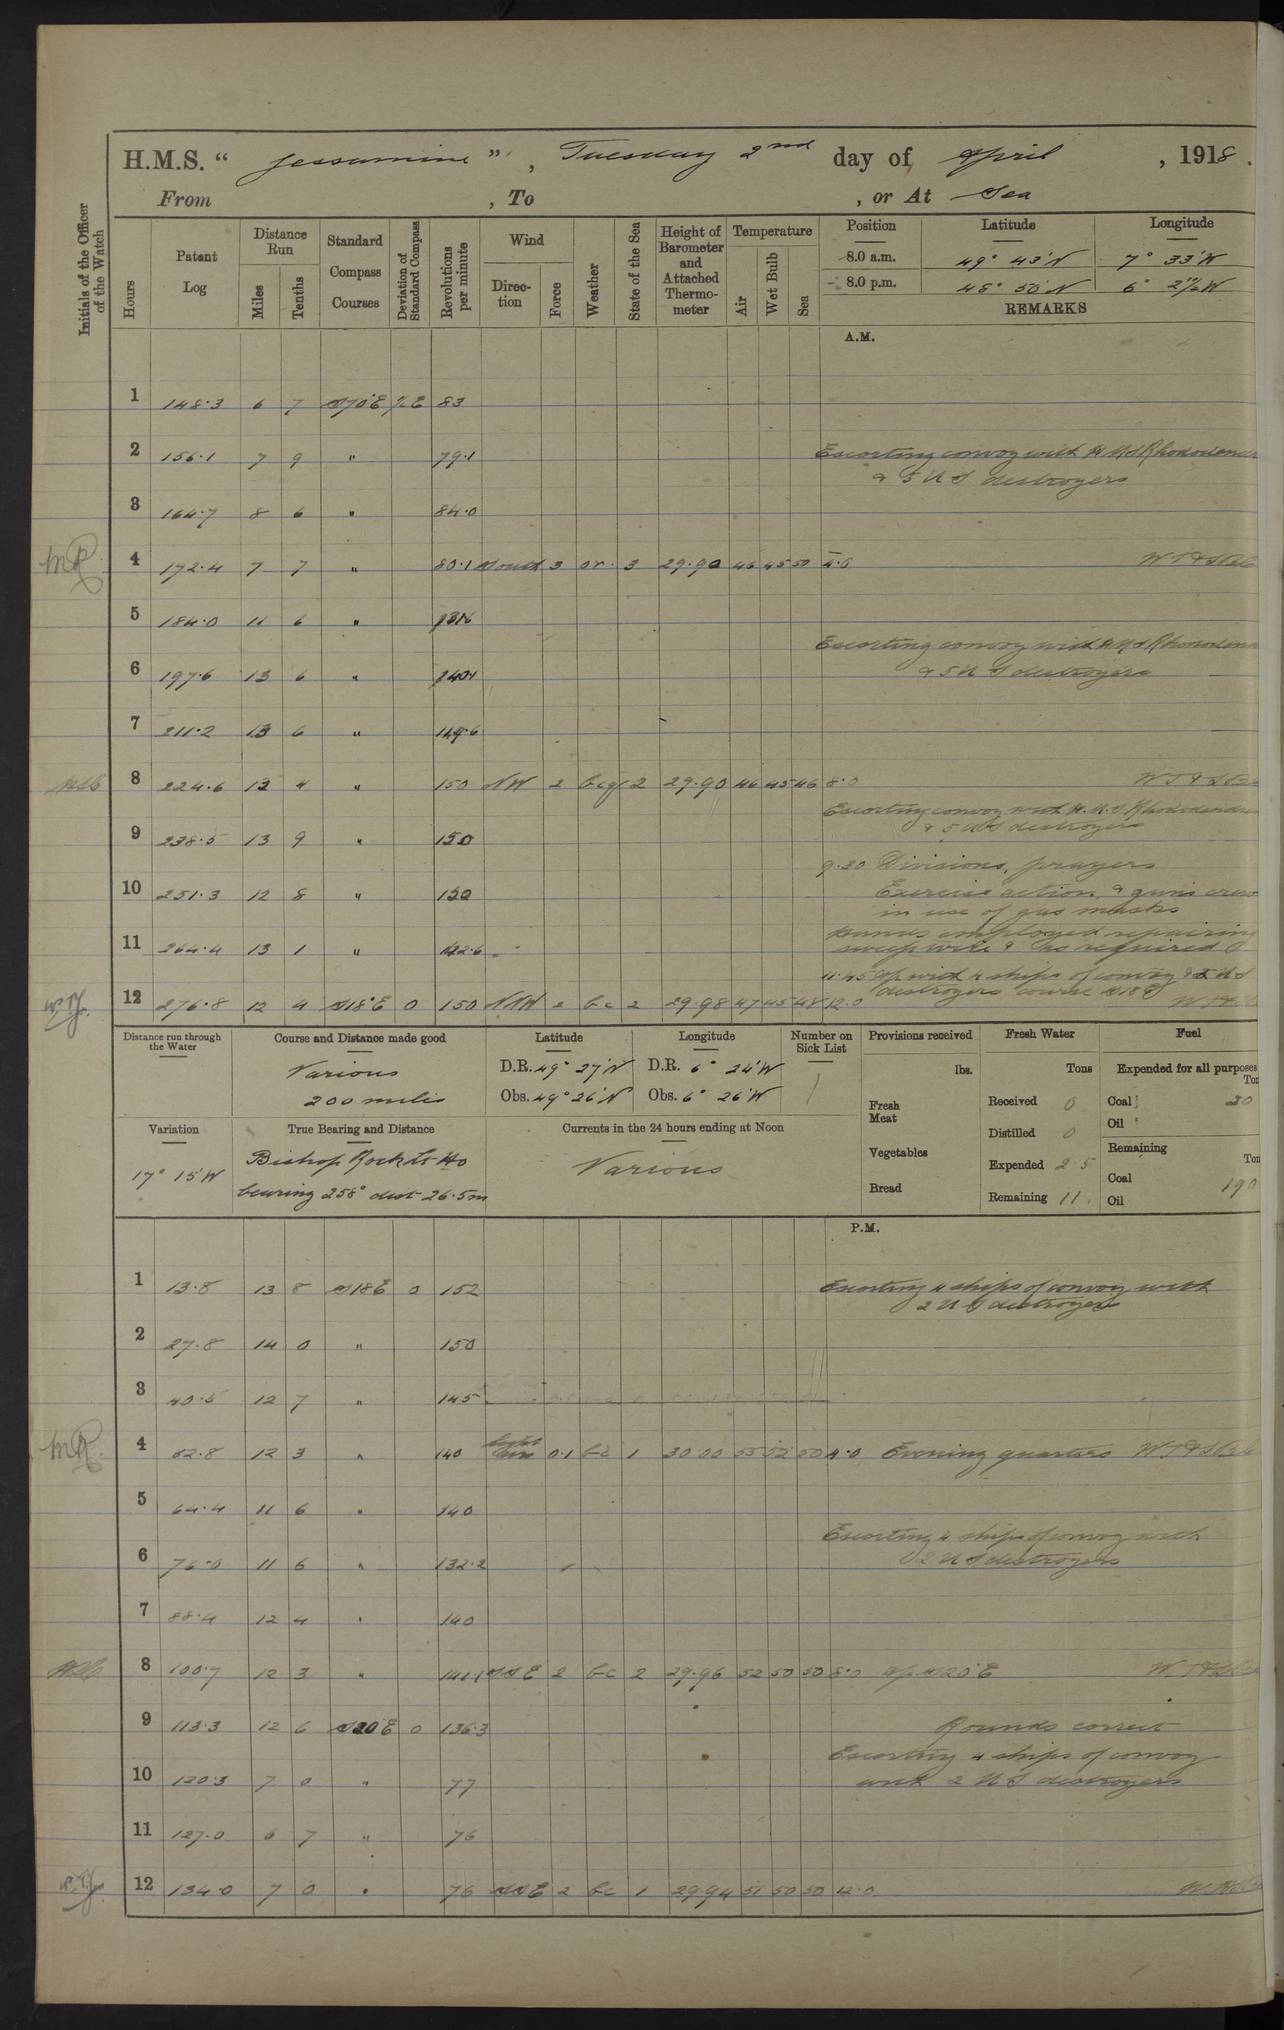 H.M.S. " Jessamine " , Tuesday 2nd day of April , 1918 .
From , To , or At Sea
Initials of the Officer of the Watch
Hours
Patent Log
Distance Run
Miles
Tenths
Standard Compass Courses
Deviation of Standard Compass
Revolutions per minute
Wind
Direction
Force
Weather
State of the Sea
Height of Barometer and Attached Thermometer
Temperature
Air
Wet Bulb
Sea
Position Latitude Longitude
8.0 a.m. 49° 43' N 7° 33' W
8.0 p.m. 48° 50' N 6° 2½' W
REMARKS
A.M.
1 148.3 6 7 S70°E ½E 83
2 156.1 7 9 " 79.1 Escorting convoy with HMS
& 5 U S destroyers
3 164.7 8 6 " 84.0
4 172.4 7 7 " 80.1 South 3 or 3 29.90 46 45 50 4.0
5 184.0 11 6 "
Escorting convoy with HMS
6 197.6 13 6 "
& 5 U S destroyers
7 211.2 13 6 " 149.6
8 224.6 13 4 " 150 NW 2 bcq 2 29.90 46 45 46 8.0
Escorting convoy with H.M.S Rhododendron
9 238.5 13 9 " 150
& 5 US destroyers
9.30 Divisions, prayers
10 251.3 12 8 " 150 Exercise action, & guns crew
in use of gas masks
Hands employed repairing
11 264.4 13 1 " sweep wire & as required
11.45 A/c with 4 ships of convoy & 2 US
destroyers course S18E
12 276.8 12 4 S18°E 0 150 NNW 2 bc 2 29.98 47 45 48 12.0
Distance run through the Water
Course and Distance made good
Various
200 miles
Latitude
D.R. 49° 27' N
Obs. 49° 26' N
Longitude
D.R. 6° 24' W
Obs. 6° 26' W
Number on Sick List
1
Provisions received
lbs.
Fresh Meat
Vegetables
Bread
Fresh Water
Tons
Received 0
Distilled 0
Expended 2.5
Remaining 11.
Fuel
Expended for all purposes
Coal 30
Oil
Remaining
Coal 190
Oil
Variation
17° 15' W
True Bearing and Distance
Bishop Rock Lt Ho
bearing 258° dist 26.5m
Currents in the 24 hours ending at Noon
Various
P.M.
1 13.8 13 8 S18E 0 152 Escorting 4 ships of convoy with
2 U S destroyers
2 27.8 14 0 " 150
3 40.5 12 7 " 145
4 52.8 12 3 " 140 Light airs 0.1 bc 1 30.00 55 52 50 4.0 Evening quarters
5 64.4 11 6 " 140
Escorting 4 ships of convoy with
6 76.0 11 6 " 132.2 2 U S destroyers
7 88.4 12 4 " 140
8 100.7 12 3 " 141.1 SSE 2 bc 2 29.96 52 50 50 8.0 A/c S20°E
9 113.3 12 6 S20°E 0 136.3 Rounds correct
Escorting 4 ships of convoy
10 120.3 7 0 " 77 with 2 U S destroyers
11 127.0 6 7 " 76
12 134.0 7 0 " 76 SSE 2 bc 1 29.94 51 50 50 12.0